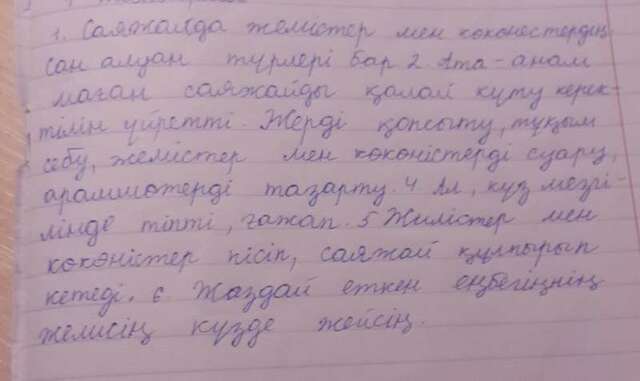 1. Саяжайда жемістер мен көкөнестердің
сан алуан түрлері бар 2. Ата-анам
маған саяжайды қалай күту керек-
тілін үйретті. Жерді қопсыту, тұқым
себу, жемістер мен көкөністерді суару,
арамшөтерді тазарту. 4 Ал, күз мезгі-
лінде тіпті, ғажап. 5 Жилістер мен
көкөністер пісіп, саяжай құлпырып
кетеді. 6. Жаздай еткен еңбегіңнің
желисің күзде жейсің.